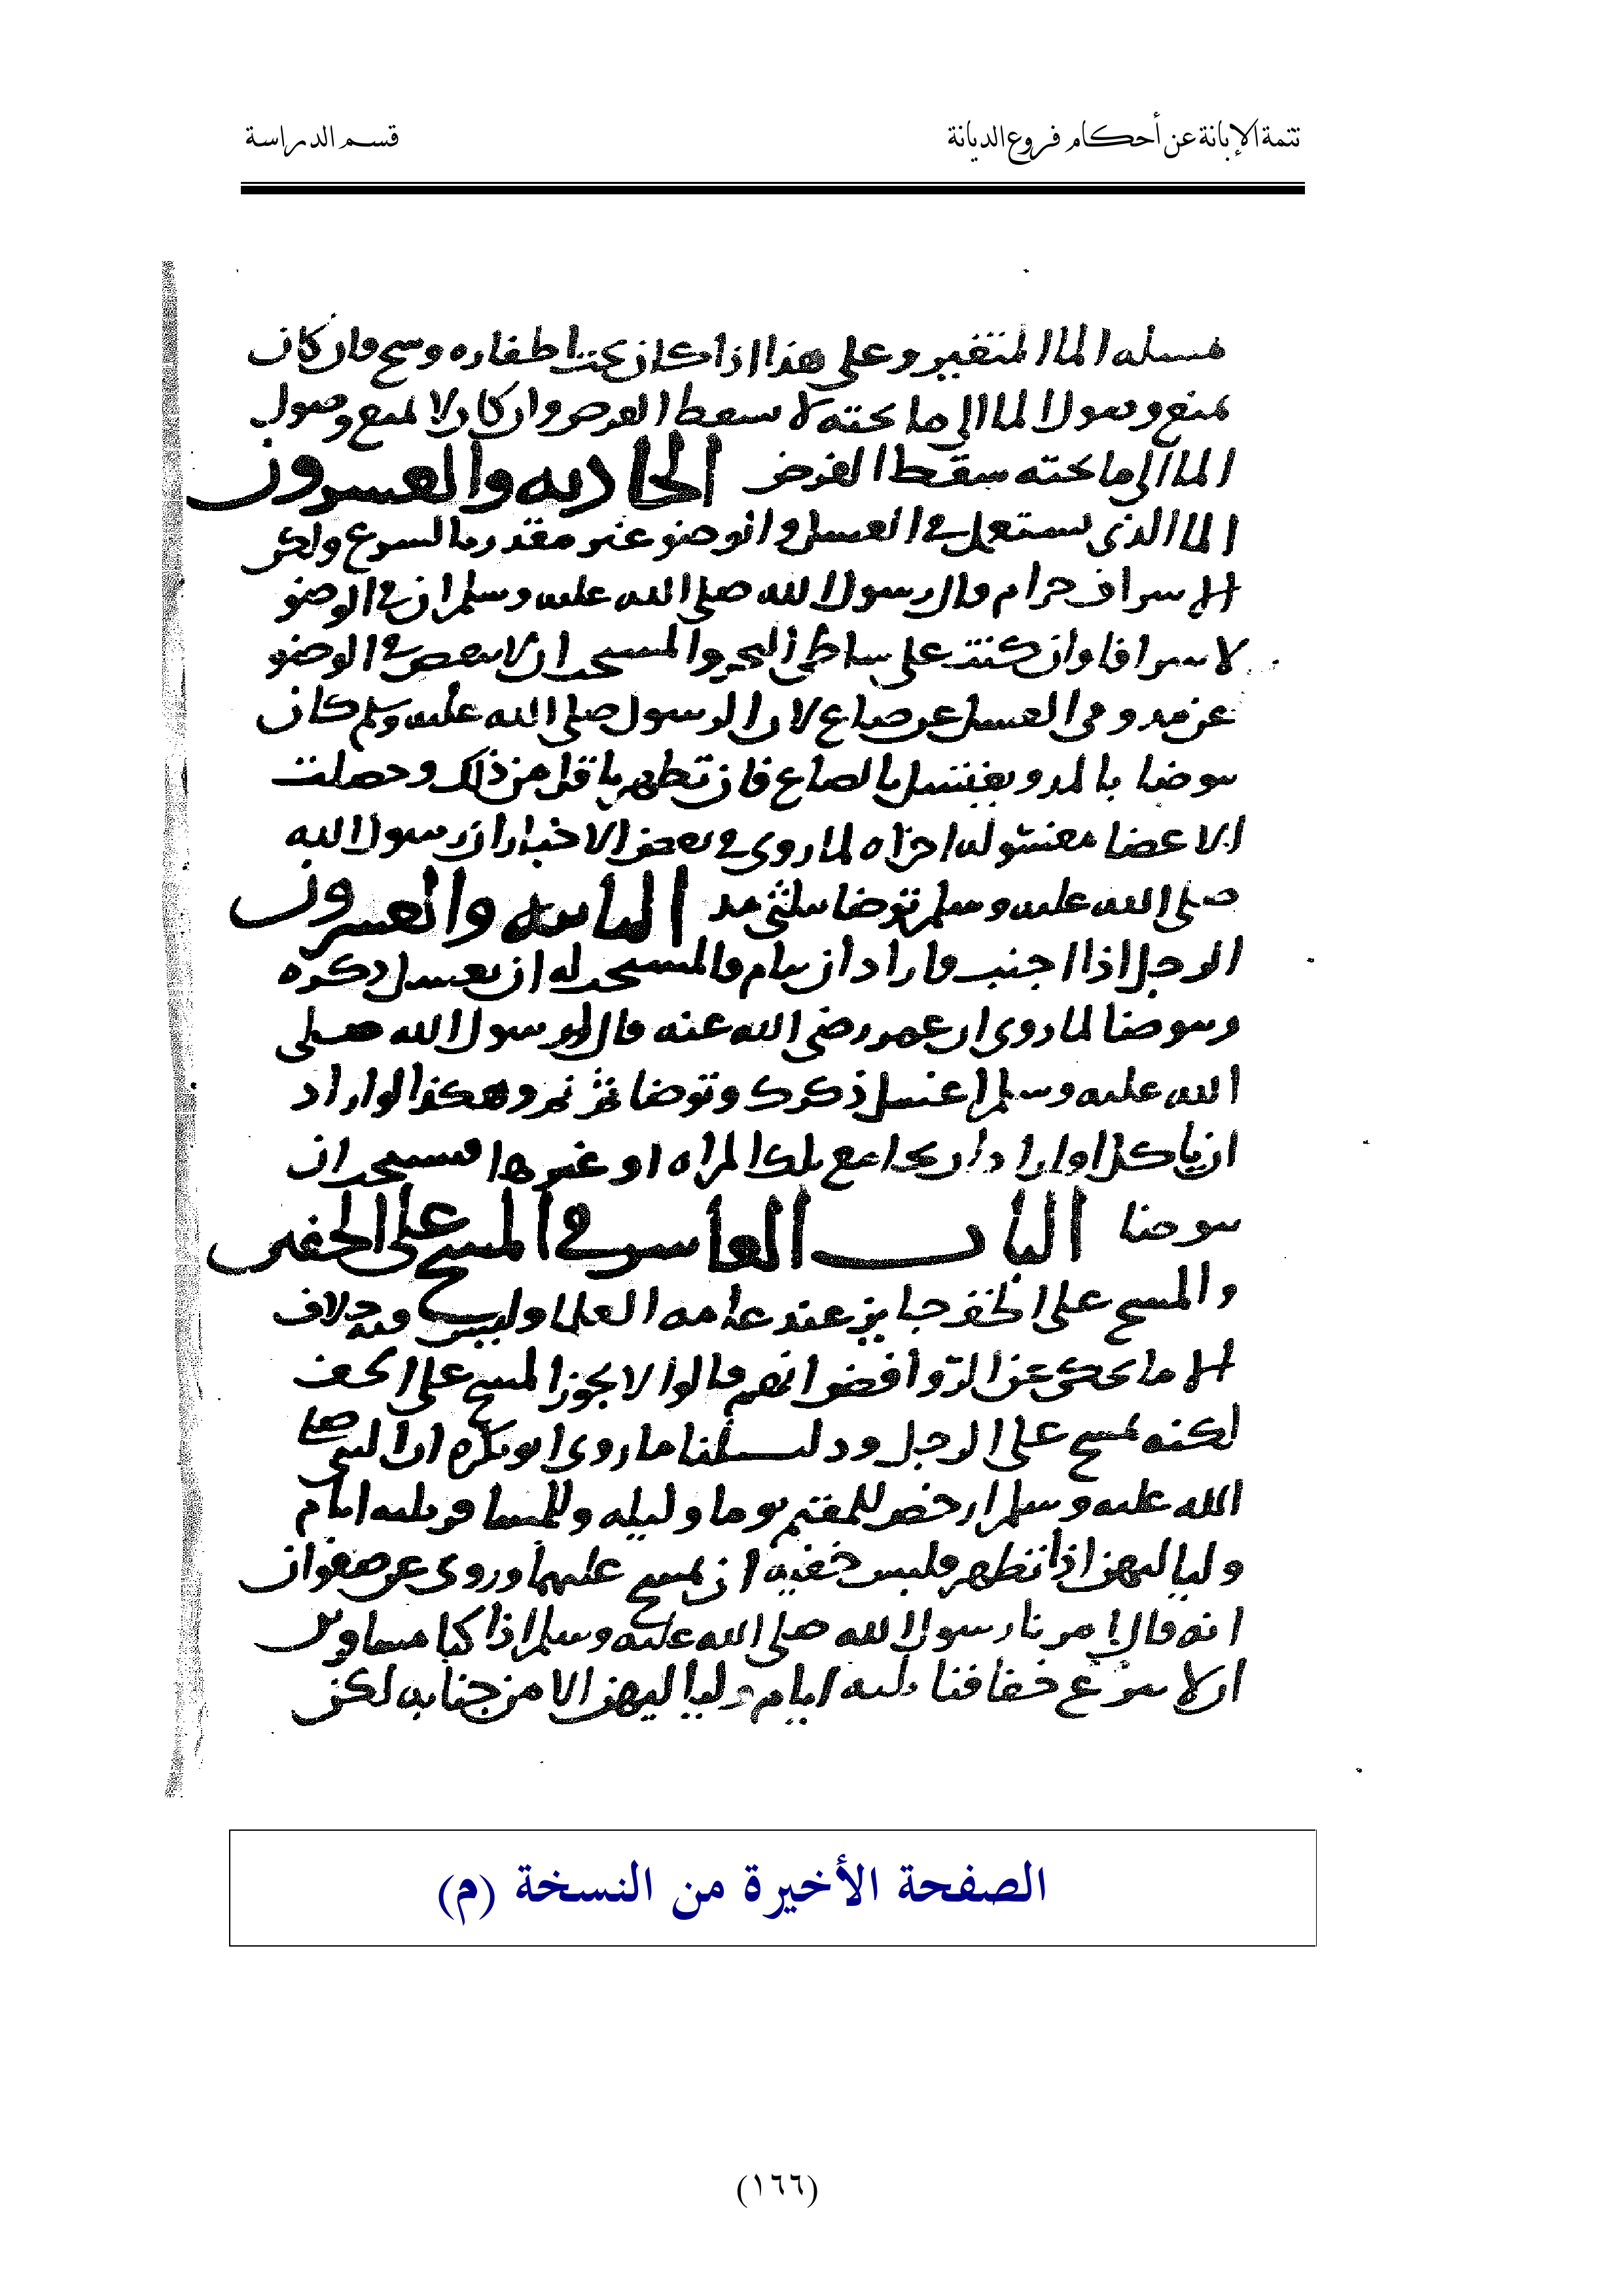 تتمة الإبانة عن أحكام فروع الديانة
قسم الدراسة
مسله الما المتغير وعلى هذا اذا كان تحت اظفاره وسح فان كان
يمنع وصول الما الى ما تحته لا يسقط الفرض وان كان لا يمنع وصول
الما الى ما تحته سقط الفرض الحاديه والعسرون
الما الذي يستعمل في الغسل والوضو غير مقدر بالشرع ولكن
الاسراف حرام قال رسول الله صلى الله عليه وسلم ان في الوضو
لاسرافا وان كنت على شاطئ البحر والمستحب ان لا ينقص في الوضو
عن مد وفي الغسل عن صاع لان الرسول صلى الله عليه وسلم كان
يتوضا بالمد ويغتسل بالصاع فان تطهر باقل من ذلك وحصلت
الاعضا مغسوله اجزاه لما روي في بعض الاخبار ان رسول الله
صلى الله عليه وسلم توضا بثلثي مد الثانيه والعسرون
الرجل اذا اجنب واراد ان ينام فالمستحب له ان يغسل ذكره
ويتوضا لما روي ان عمر رضي الله عنه قال رسول الله صلى
الله عليه وسلم اغسل ذكرك وتوضا ثم نم وهكذا لو اراد
ان ياكل او اراد ان يجامع تلك المراه او غيرها فيستحب ان
يتوضا الباب العاشر في المسح على الخفين
والمسح على الخف جايز عند عامه العلما وليس فيه خلاف
الا ما يحكى عن الروافض انهم قالوا لا يجوز المسح على الخف
لكنه يمسح على الرجل ودليلنا ما روى ابو بكره ان النبي صلى
الله عليه وسلم ارخص للمقيم يوما وليله وللمسافر ثلثه ايام
ولياليهن اذا تطهر فلبس خفيه ان يمسح عليهما وروي عن صفوان
انه قال امرنا رسول الله صلى الله عليه وسلم اذا كنا مسافرين
ان لا ننزع خفافنا ثلثه ايام ولياليهن الا من جنابه لكن
الصفحة الأخيرة من النسخة (م)
(١٦٦)